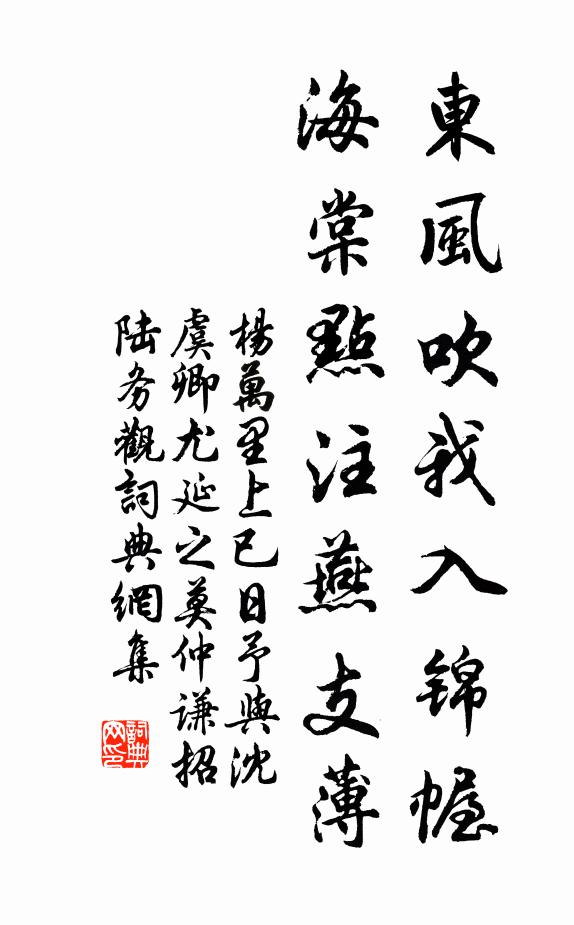 東風吹我入錦幄
海棠點注燕支薄
楊萬里上巳日予與沈
虞卿尤延之莫仲謙招
陆务觀詞典網集
詞典网印